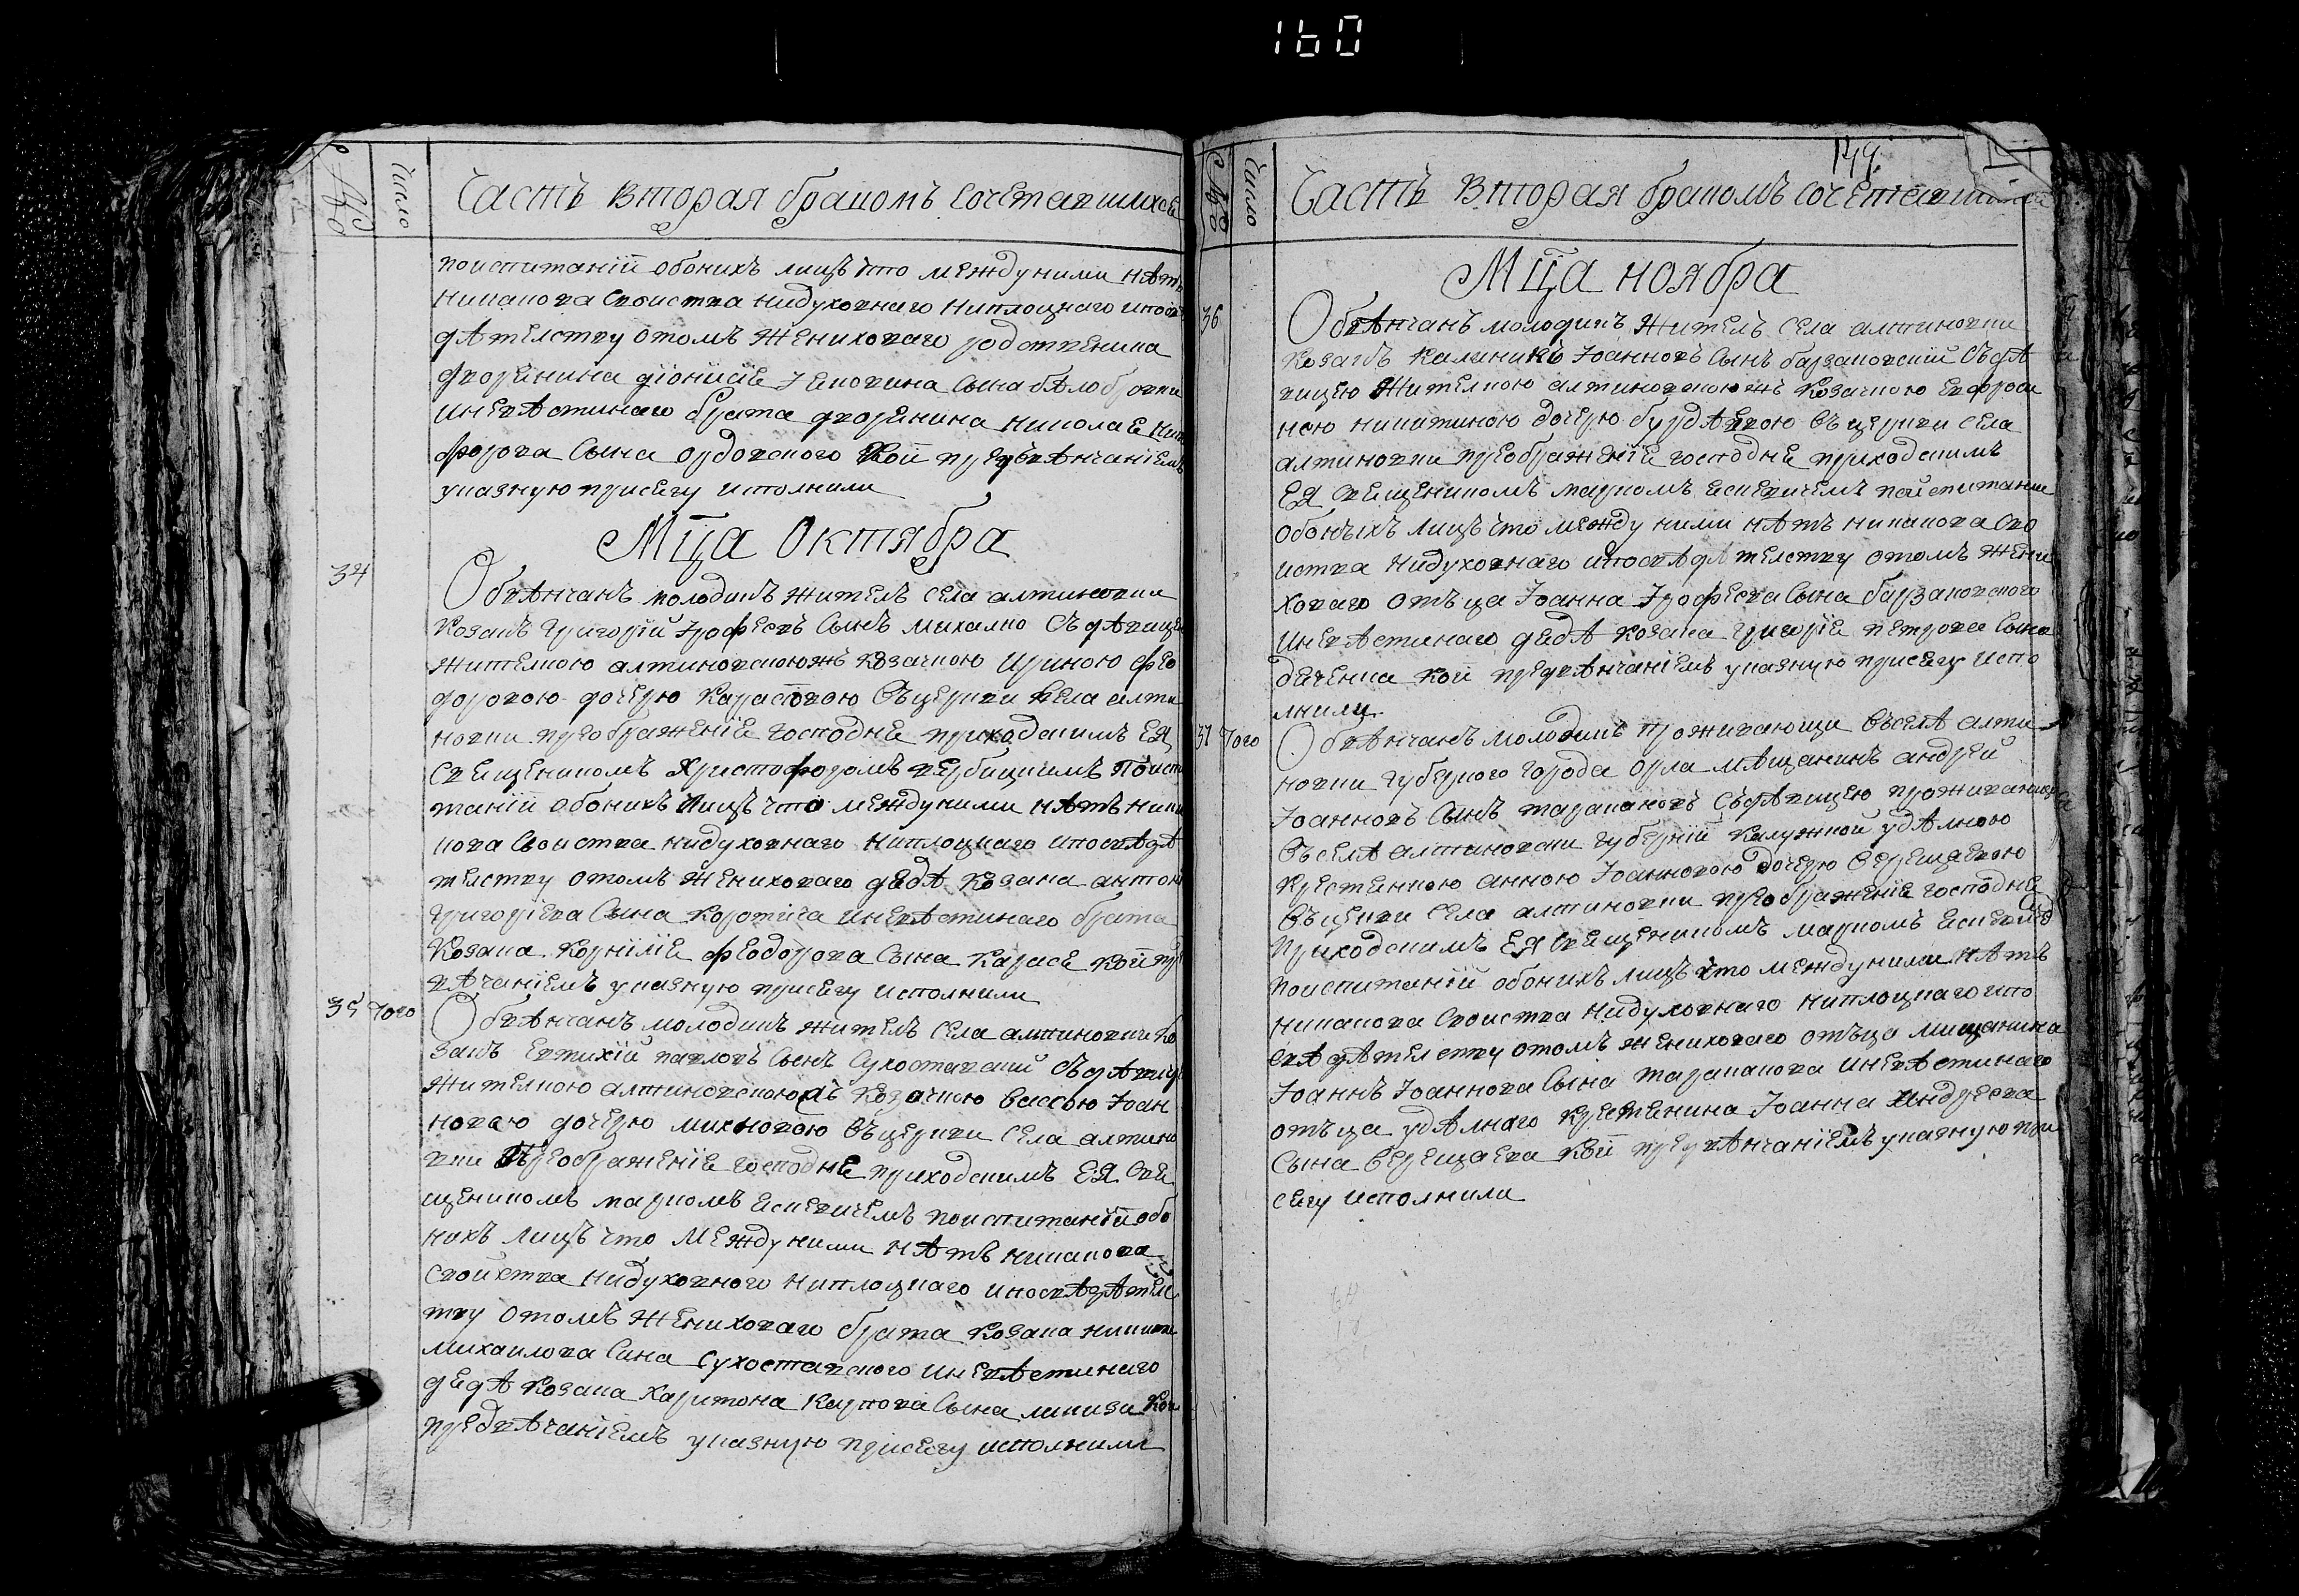 160
№
Число
Часть вторая бракомъ сочетавшихсе
поиспитаніи обоихъ лицъ что между ними нѣтъ
никакова своиства нидуховнаго ниплоцкаго ипосвѣ
дѣтелству отомъ жениховаго родственика
дворянина діонисіе Іаковина сына бѣлобровки
иневѣстинаго брата дворенина николае ники
форова сына ордовского кои предвѣнчаніемъ
указную присегу исполнили
Мца Октября
34
Обвѣнчанъ молодикъ жителъ села алтиновки
козакъ григорій Ірофеевъ сынъ михалко съ дѣвице
жителкою алтиновскоюжъ козачкою ириною фео
доровою дочерю карасовою въцеркви села алти
новки преображеніе господне приходскимъ ея
свещеникомъ христофоромъ вербицкимъ поиспи
таніи обоихъ лицъ что между ними нѣтъ ника
кова своиства нидуховнаго ниплоцкаго ипосвѣдѣ
телству отомъ жениховаго дедѣ козака антона
григоріева сына коротича иневѣстинаго брата
козака корніліе феодорова сына карасе кои пред
вѣчаніемъ указную присегу исполнили
35 того
Обвѣнчанъ молодикъ жителъ села алтиновки ко
закъ евтихій павловъ сынъ сухоставскій съ дѣвице
жителкою алтиновскоюжъ козачкою вассою Іоан
новою дочерю михновою въцеркви села алтино
вки преображеніе господне приходскимъ ея све
щеникомъ маркомъ есиевичемъ поиспитаніи обо
ихъ лицъ что между ними нѣтъ никакова
свойства нидуховного ниплоцкаго ипосвѣдѣтелс
тву отомъ жениховаго брата козака никити
михаилова сина сухоставского иневѣстинаго
дедѣ козака харитона карпова сына ликизи кои
предвѣчаніемъ указную присегу исполнили
149
№
Число
Часть вторая бракомъ сочетавши
Мца ноября
36
Обвѣнчанъ молодикъ жителъ села алтиновки
козакъ калиникъ Іоанновъ сынъ барзаковскій съ дѣ
вицею жителкою алтиновскоюжъ козачкою евфроси
нею никитиною дочерю бурдѣевою въ церкви села
алтиновки преображеніе господне приходскимъ
ея свещеникомъ маркомъ есиевичемъ поиспитание
обоихъ лицъ что между ними нѣтъ никакова сво
иства нидуховнаго ипосвѣдѣтелству отомъ жени
ховаго отъца Іоанна Ірофеева сына барзаковского
иневѣстинаго дедѣ козака григоріе петрова сына
кои предвѣнчаніемъ указную присегу испо
лнили
37 того
Обвѣнчанъ молодикъ проживающи въселѣ алти
новки губерного города орла мѣщанинъ андрей
Іоанновъ сынъ таракановъ съдѣвицею проживающе
въселѣ алтиновки губерніи калужкой удѣлною
крестянкою анною Іоанновою дочерю верещаевою
въцеркви села алтиновки преображеніе господне
приходскимъ ея свещеникомъ маркомъ есиевиче
поиспитаніи обоихъ лицъ что между ними нѣтъ
никакова своиства нидуховнаго ниплоцкаго ипо
свѣдѣтелству отомъ жениховаго отъца мищанина
Іоаннъ Іоаннова сына тараканова иневѣстинаго
отъца удѣлнаго крестенина Іоанна андреева
сына верещаева кои предвѣнчаніемъ указную при
сегу исполнили